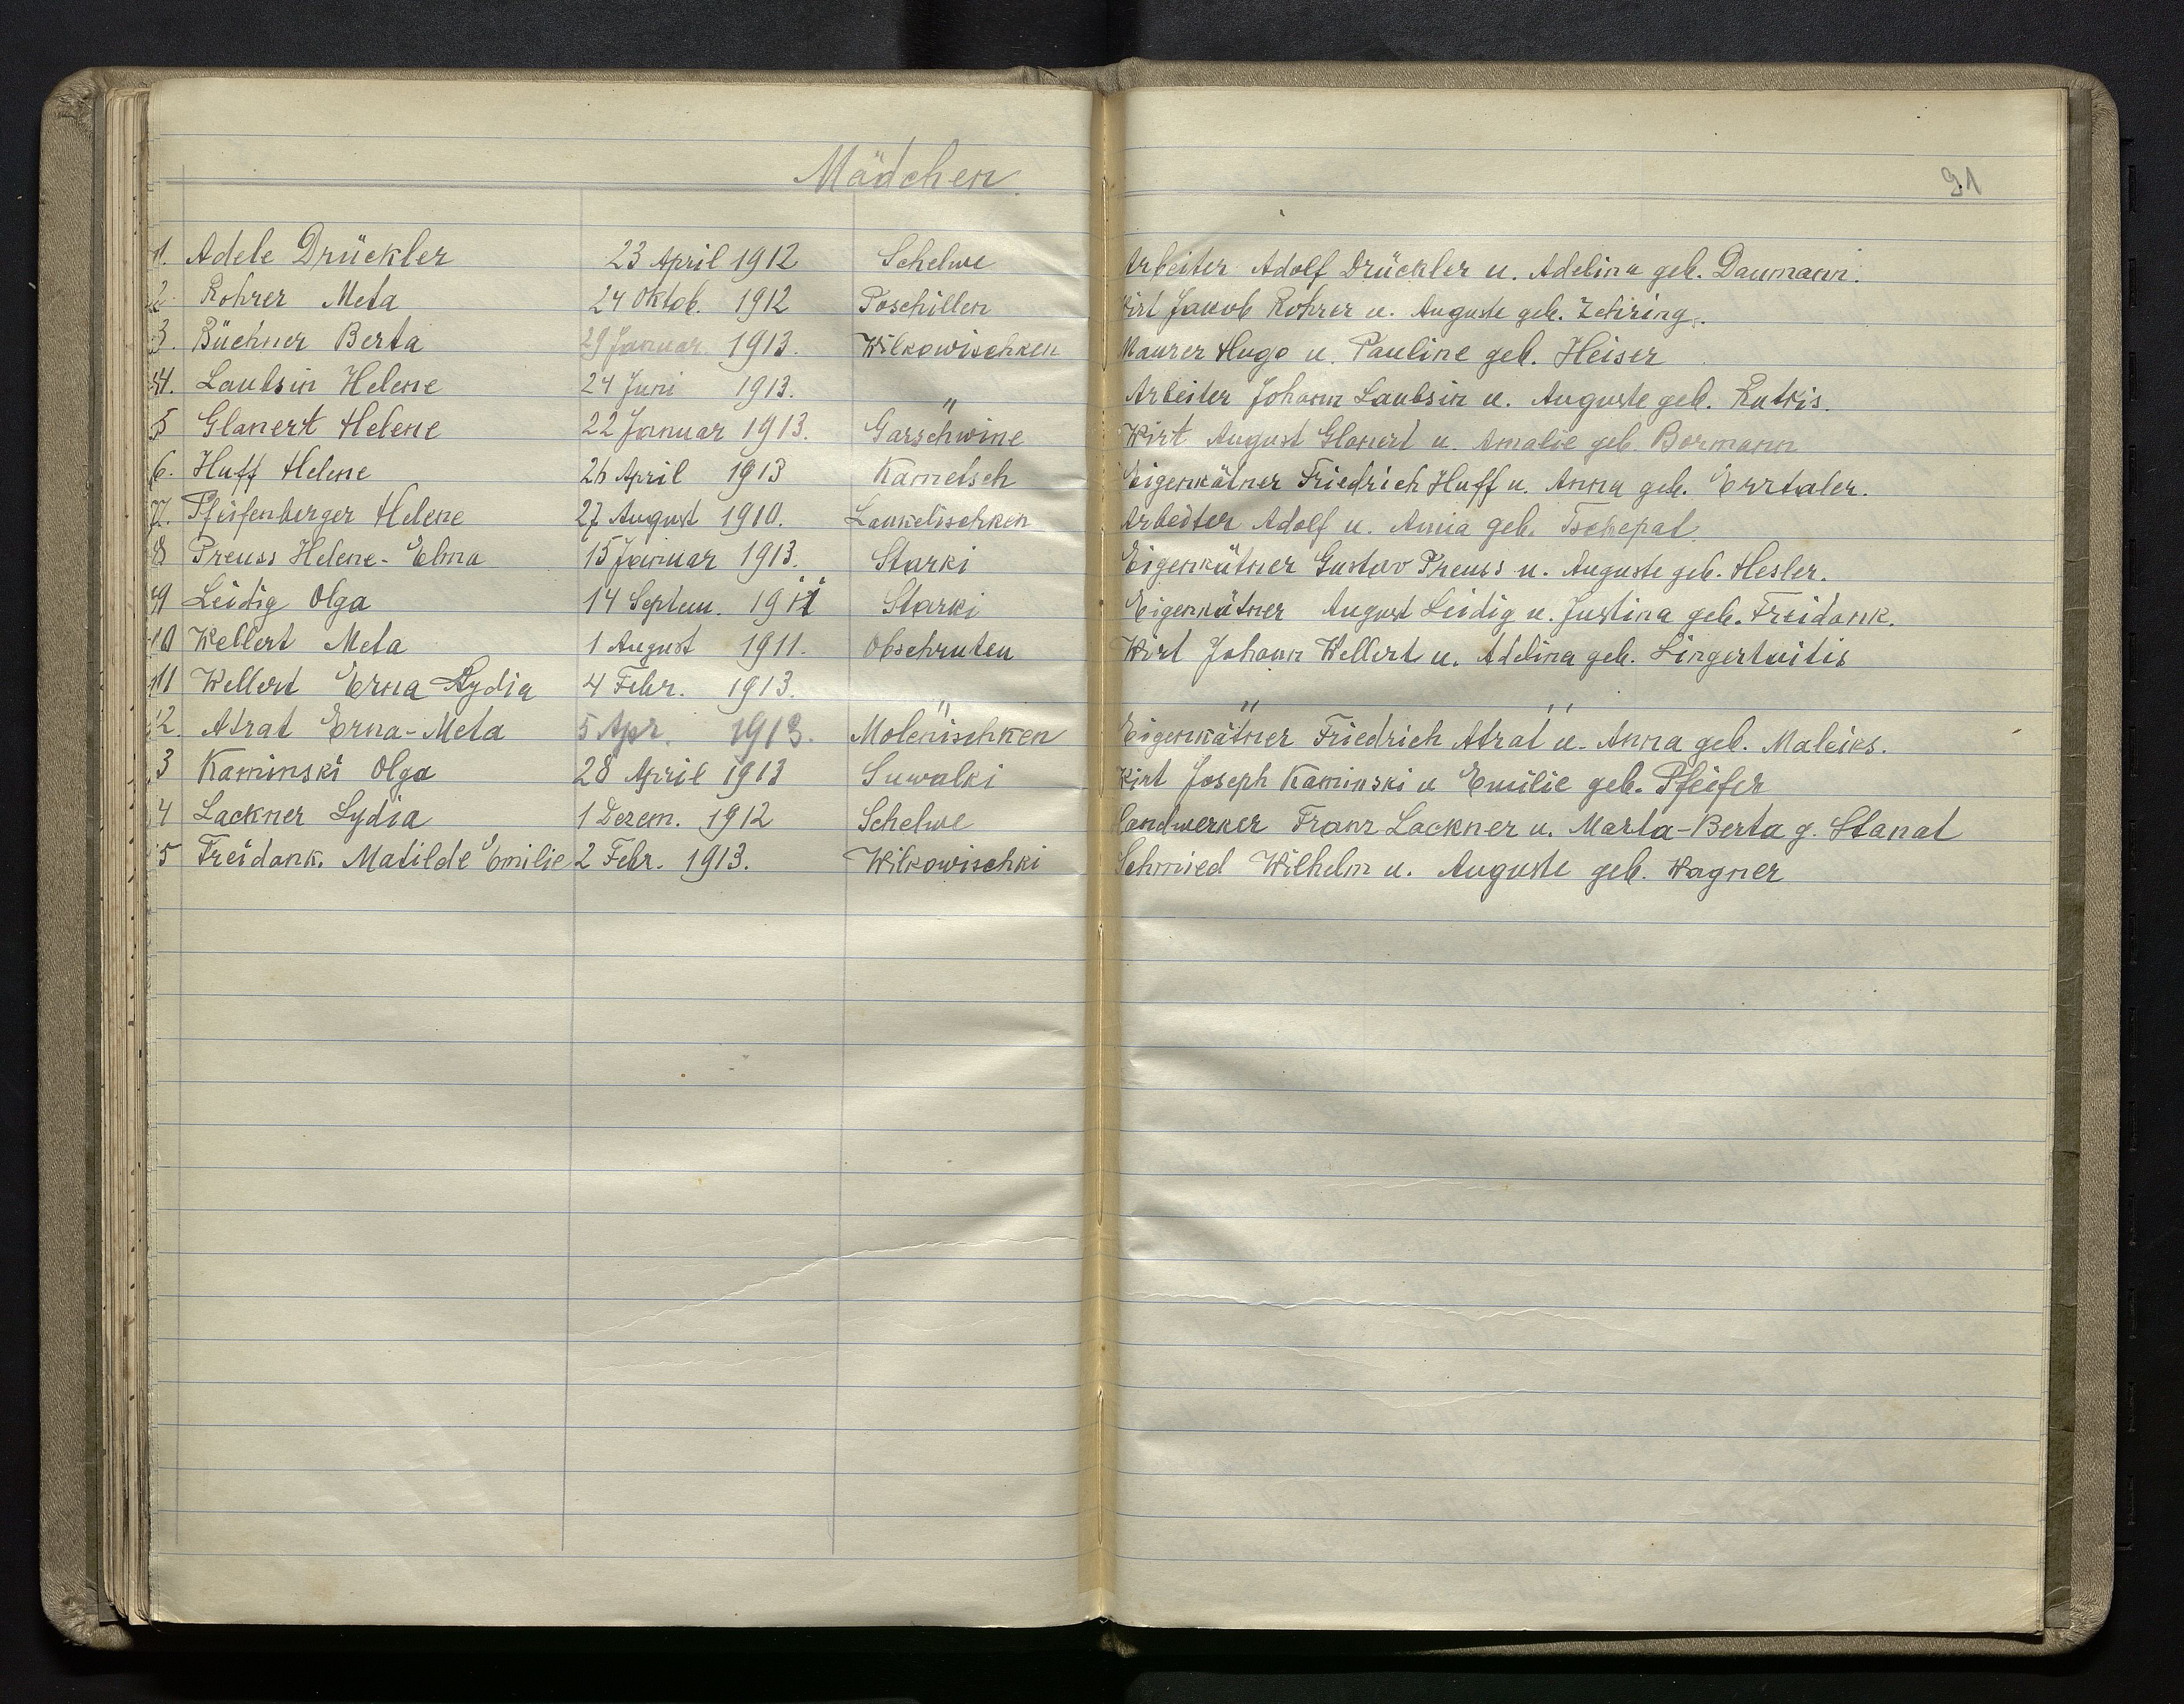 Mädchen
91
1. Adele Drückler 23 April 1912 Schelwe Arbeiter Adolf Drückler u. Adelina geb. Daumann.
2. Rohrer Meta 24 Oktob. 1912 Poschillen Wirt Jakob Rohrer u. Auguste geb. Zehring.
3. Büchner Berta 29 Januar. 1913. Wilkowischken Maurer Hugo u. Pauline geb. Heiser
4. Laubsin Helene 24 Juni 1913. " Arbeiter Johann Laubsin u. Auguste geb. Rutkis.
5 Glanert Helene 22 Januar 1913. Garschwine Wirt August Glanert u. Amalie geb. Bormann
6. Huff Helene 26 April 1913 Kametsch Eigenkätner Friedrich Huff u. Anna geb. Errtaler.
7. Pfeifenberger Helene 27 August 1910. Laukelischken Arbeiter Adolf u. Anna geb. Tschepat.
8 Preuss Helene-Elma 15 Januar 1913. Starki Eigenkätner Gustav Preuss u. Auguste geb. Hesler.
9 Leidig Olga 14 Septem. 1911 Starki Eigenkätner August Leidig u. Justina geb. Freidank.
10 Wellert Meta 1 August 1911. Obschruten Wirt Johann Wellert u. Adelina geb. Lingertaitis
11 Wellert Erna Lydia 4 Febr. 1913. " " "
12. Atrat Erna-Meta 5 Apr. 1913. Molenischken Eigenkätner Friedrich Atrat u. Anna geb. Maleiks.
3 Kaminski Olga 28 April 1913 Suwalki Wirt Joseph Kaminski u Emilie geb. Pfeifer
4 Lackner Lydia 1 Dezem. 1912 Schelwe Handwerker Franz Lackner u. Marta-Berta g. Stanat
5 Freidank. Matilde Emilie 2 Febr. 1913. Wilkowischki Schmied Wilhelm u. Auguste geb. Wagner